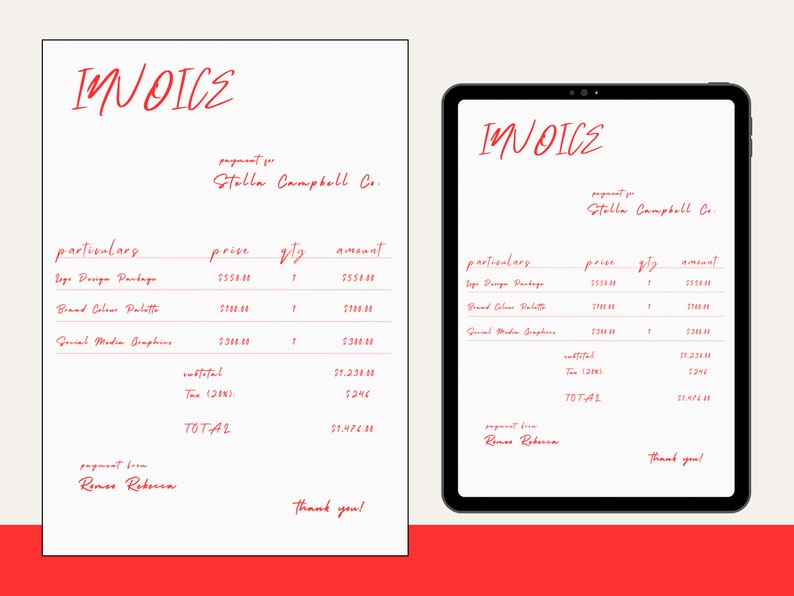 INVOICE
payment for
Stella Campbell Co.
particulars price qty amount
Logo Design Package $550.00 1 $550.00
Brand Colour Palette 1
Social Media Graphics $300.00 1 $300.00
subtotal $1,230.00
Tax (20%): $246
TOTAL $1,476.00
payment from
Romeo Rebecca
thank you!
INVOICE
payment for
Stella Campbell Co.
particulars price qty amount
Logo Design Package $550.00 1 $550.00
Brand Colour Palette 1
Social Media Graphics $300.00 1 $300.00
subtotal $1,230.00
Tax (20%): $246
TOTAL $1,476.00
payment from
Romeo Rebecca
thank you!